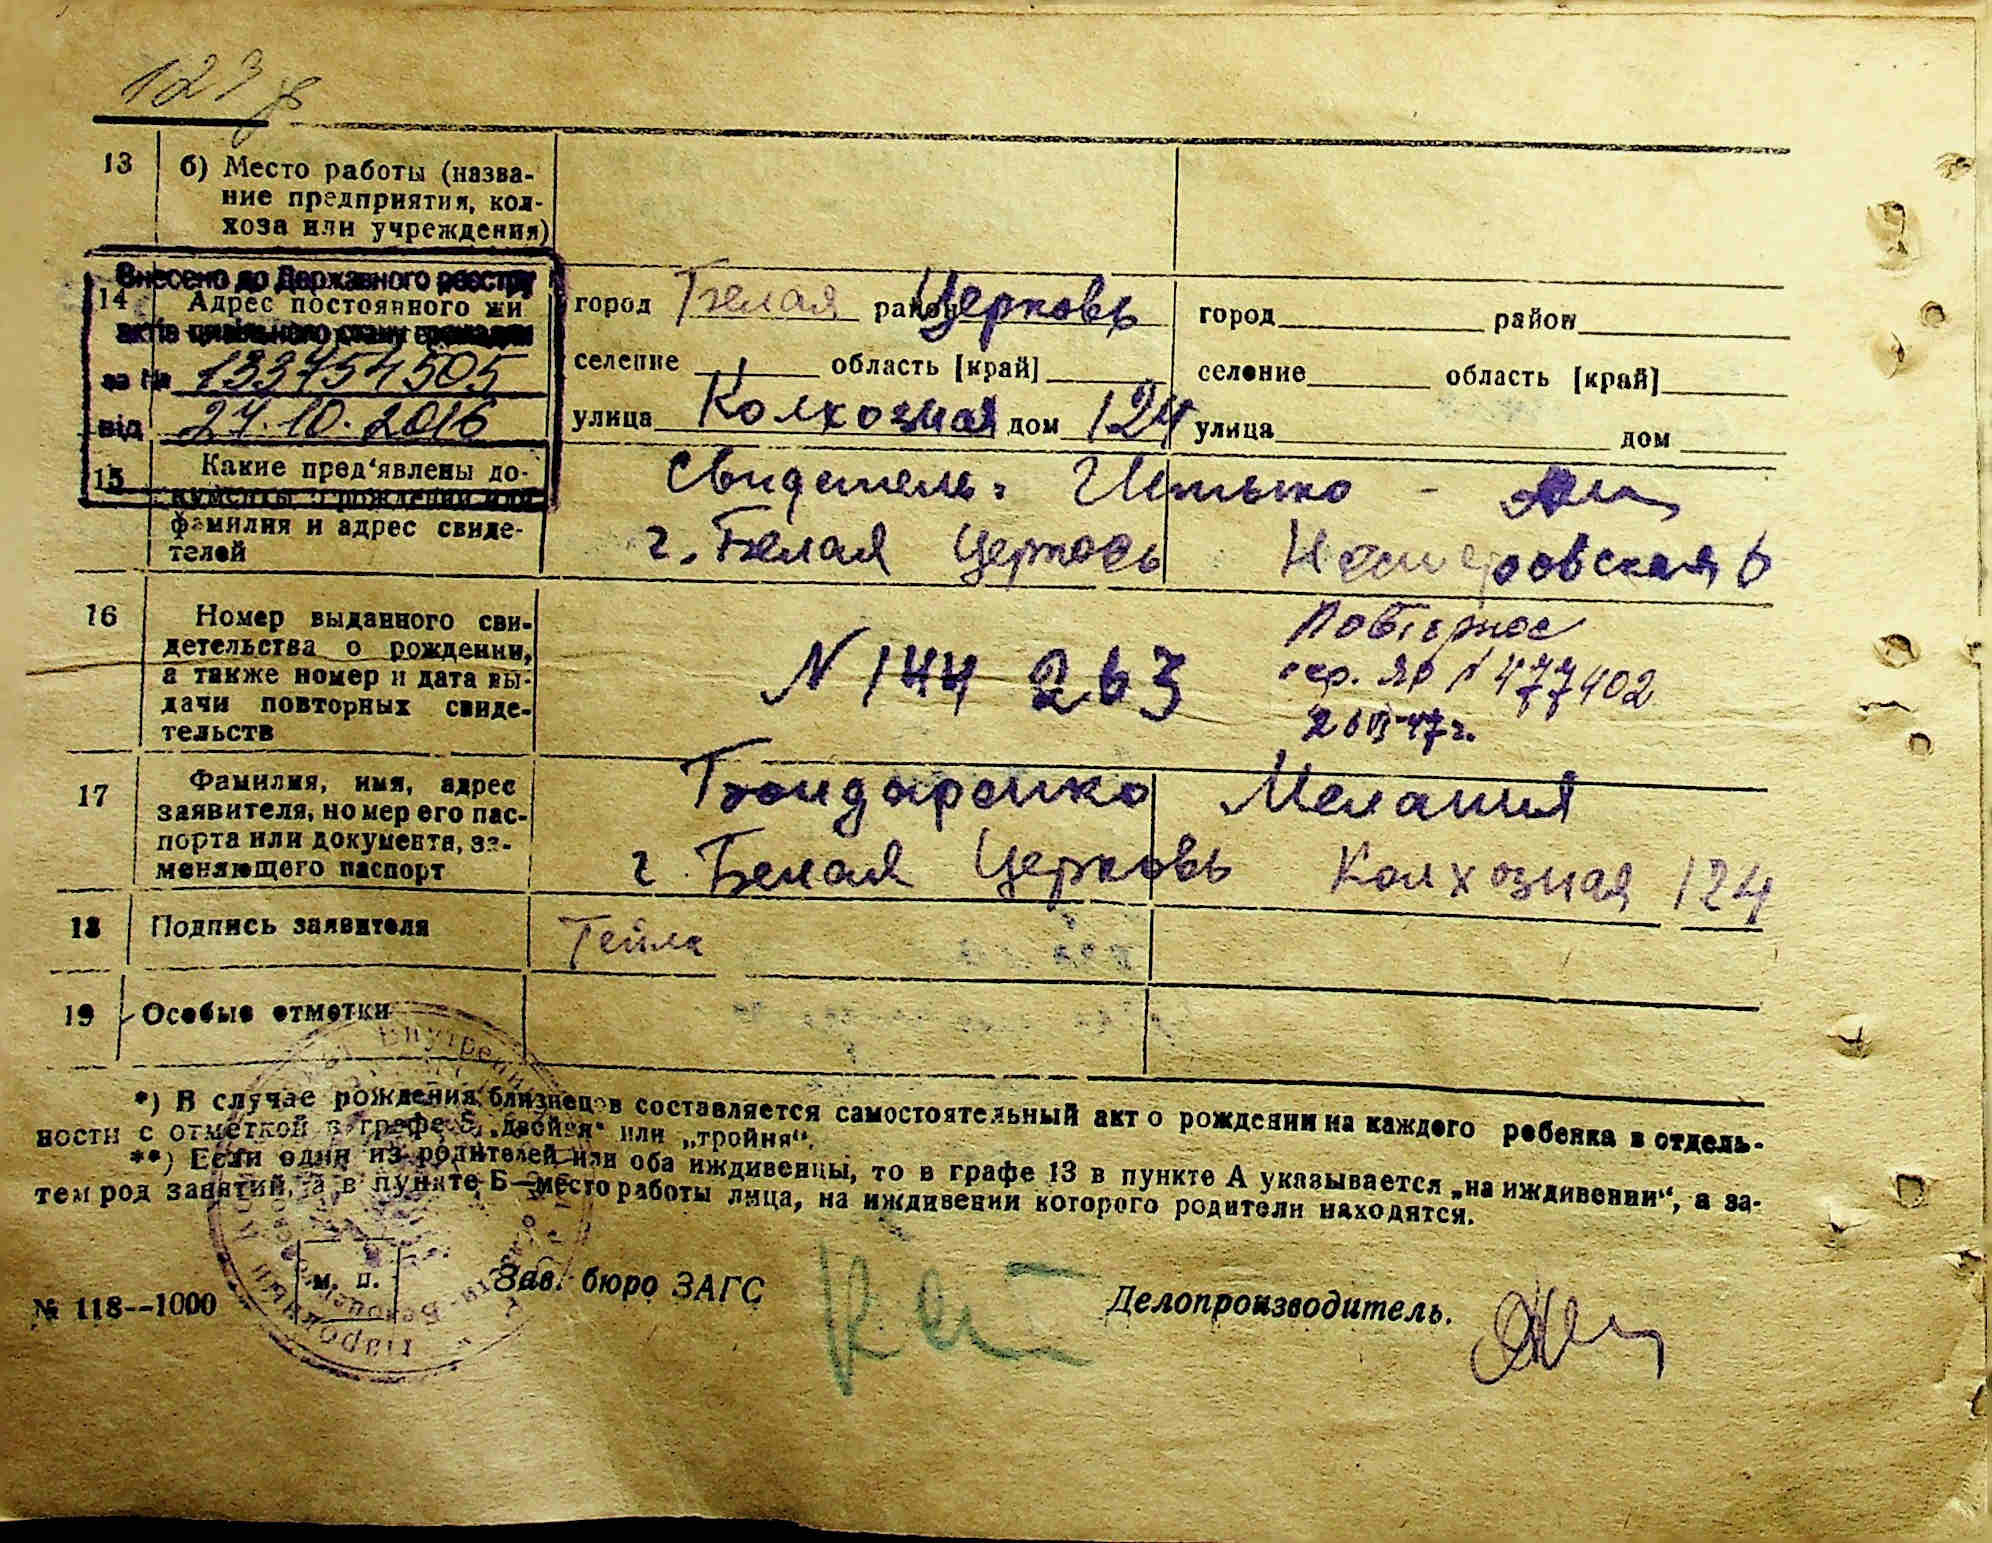 13
б) Место работы (назва-
ние предприятия, кол-
хоза или учреждения)
Внесено до Державного реєстру
актів цивільного стану громадян
за № 133754505
від 27.10.2016
14
Адрес постоянного жи
город Белая район Церковь
селение область [край]
улица Колхозная дом 124
город район
селение область [край]
улица дом
15
Какие пред‘явлены до-
кументы о рождении или
фамилия и адрес свиде-
телей
Свидетель:
г. Белая Церковь
16
Номер выданного сви-
детельства о рождении,
а также номер и дата вы-
дачи повторных свиде-
тельств
N 144 263
Повторное
сер. ЯР N 477402
17
Фамилия, имя, адрес
заявителя, номер его пас-
порта или документа, за-
меняющего паспорт
Бондаренко Мелания
г. Белая Церковь Колхозная 124
18
Подпись заявителя
19
Особые отметки
*) В случае рождения близнецов составляется самостоятельный акт о рождении на каждого ребенка в отдель-
ности с отметкой в графе 5 „двойня“ или „тройня“.
**) Если один из родителей или оба иждивенцы, то в графе 13 в пункте А указывается „на иждивении“, а за-
тем род занятий, а в пункте Б—место работы лица, на иждивении которого родители находятся.
м. п.
Зав. бюро ЗАГС
Делопроизводитель.
№ 118--1000